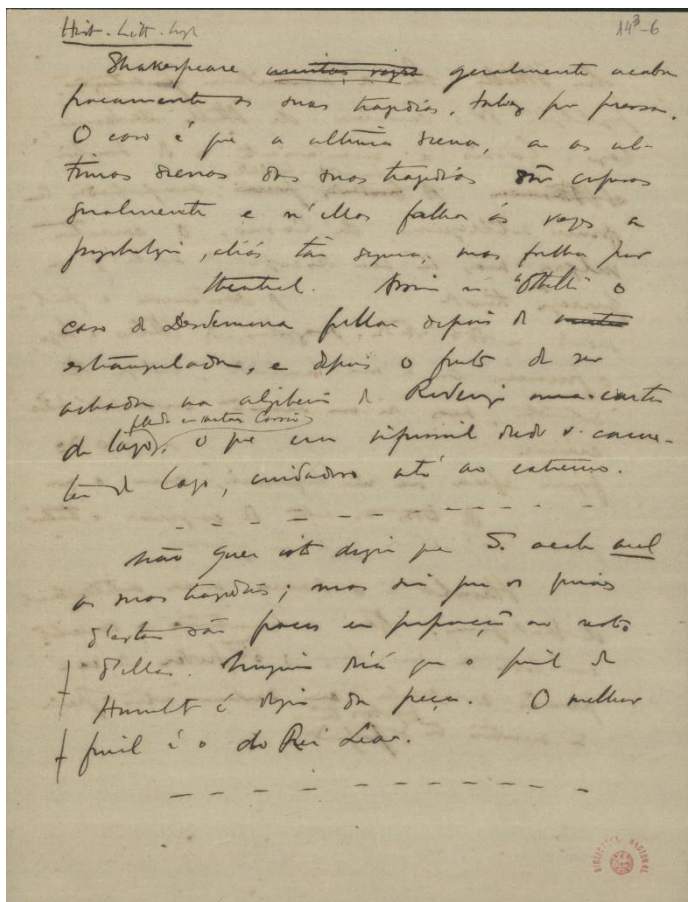 Hist. Litt. Ingl
14³-6
Shakespeare muitas vezes geralmente acaba
fracamente as suas tragedias, talvez por pressa.
O caso é que a ultima scena, ou as ul-
timas scenas das suas tragedias são confusas
geralmente e n'ellas falha ás vezes a
psychologia, aliás tão segura, mas falha por
theatral. Assim no "Othello" o
caso de Desdemona fallar depois de morta
estrangulada, e depois o facto de ser
achada na algibeira de Roderigo uma carta
fallando em matar Cassio
de Iago, o que era impossivel dado o carac-
ter de Iago, cuidadoso até ao extremo.
Não quer isto dizer que S. acabe mal
as suas tragedias; mas sim que os finaes
d'estas são fracos em proporção ao resto
d'ellas. Ninguem dirá que o final de
Hamlet é digno da peça. O melhor
final é o do Rei Lear.
BIBLIOTECA NACIONAL